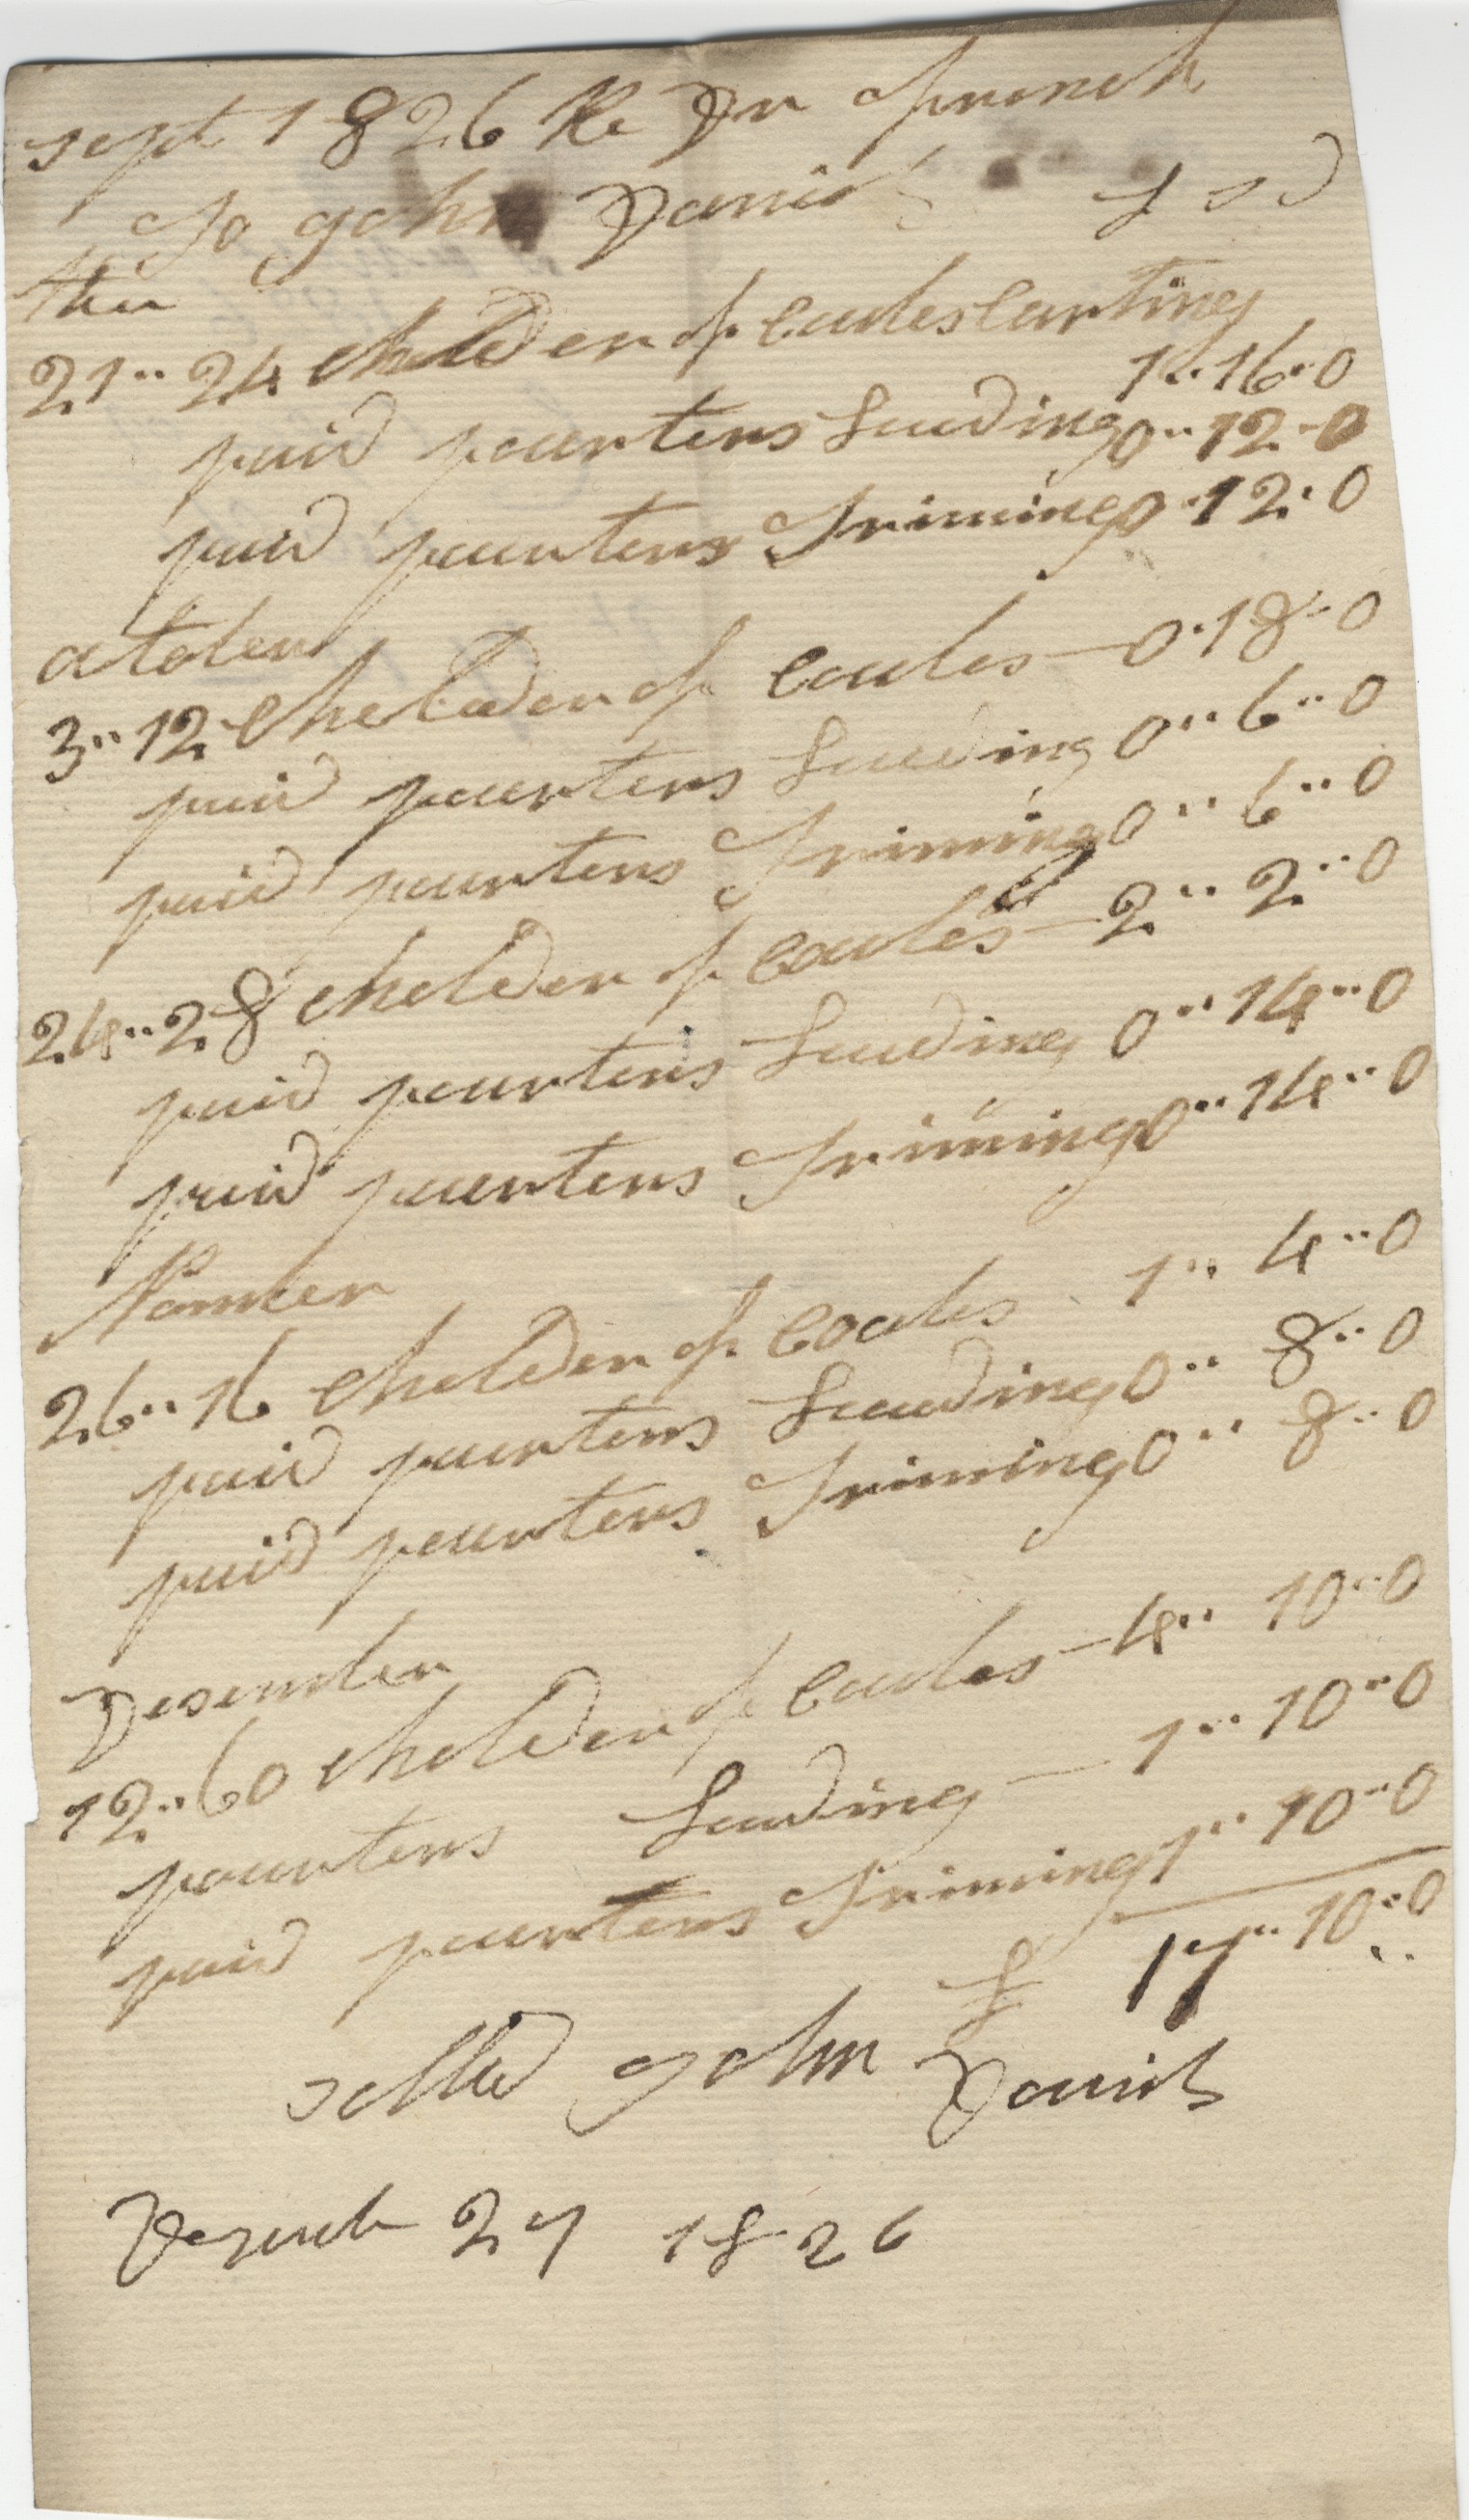 sept 1826 Re Dr french
To gohn Daniels £ s d
ther
21 ·· 24 chelder of Coales Carting
1 ·· 16 ·· 0
paid paurters Lauding 0 ·· 12 ·· 0
paid paurters Triming 0 ·· 12 · 0
otober
3 ·· 12 Chelder of Coales — 0 · 18 ·· 0
paid paurters Lauding 0 ·· 6 ·· 0
paid paurters Triming 0 ·· 6 ·· 0
24 ·· 28 chelder of Coales — 2 ·· 2 ·· 0
paid paurters Lauding 0 ·· 14 ·· 0
paid paurters Triming 0 ·· 14 ·· 0
26 ·· 16 Chelder of Coales 1 ·· 4 ·· 0
paid paurters Lauding 0 ·· 8 ·· 0
paid paurters Triming 0 ·· 8 ·· 0
Desember
12 ·· 60 chelder of Coales — 4 ·· 10 ·· 0
paurters Lauding — 1 ·· 10 ·· 0
paid paurters Triming 1 ·· 10 ·· 0
£ 17 ·· 10 ·· 0
settled gohn Daniels
Desemb 27 1826